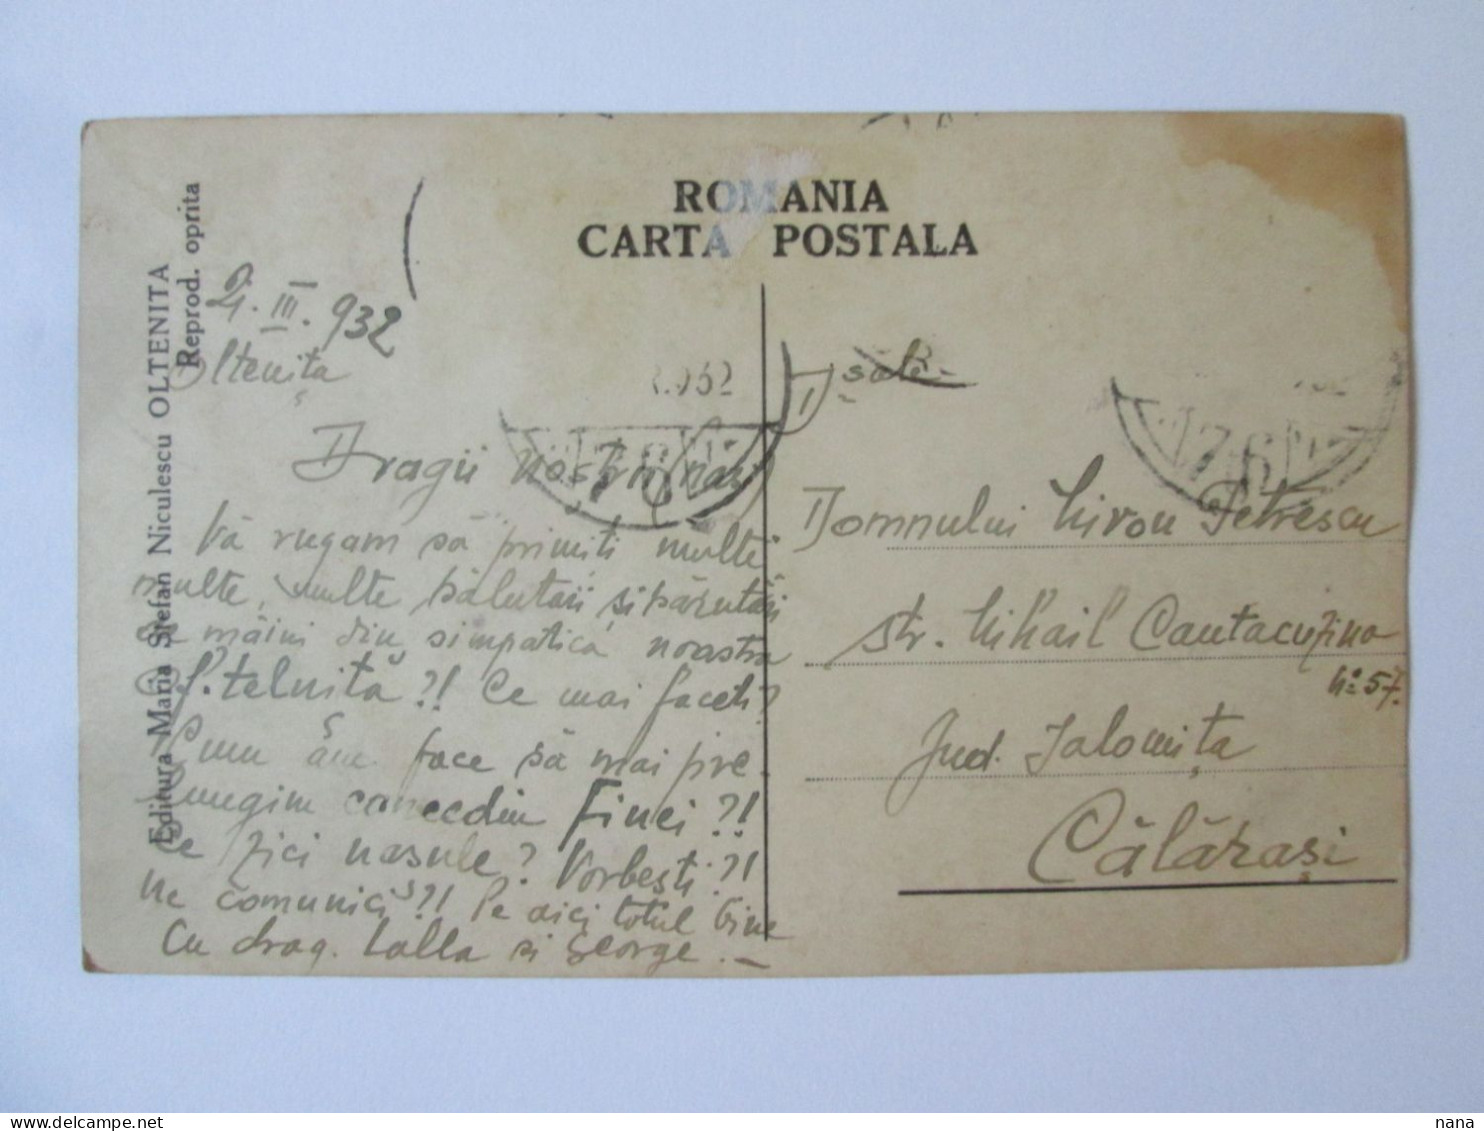 ROMANIA
CARTA POSTALA
Editura Maria Ștefan Niculescu OLTENITA
Reprod. oprita
2. III. 932
Oltenița
Dragii noștrii nași
Vă rugam să primiți multe
multe, multe sălutări și sărutări
de mâini din simpatica noastra
Oltelniță?! Ce mai faceti?
Cum am face să mai pre-
lungim Finei?!
Ce zici nasule? Vorbești?!
ne comunici?! Pe aici totul bine
Cu drag. Lalla si George. —
D-sale
Domnului Miron Petrescu
str. Mihail Cantacuzino
No 57.
Jud. Ialomița
Călărași
nana